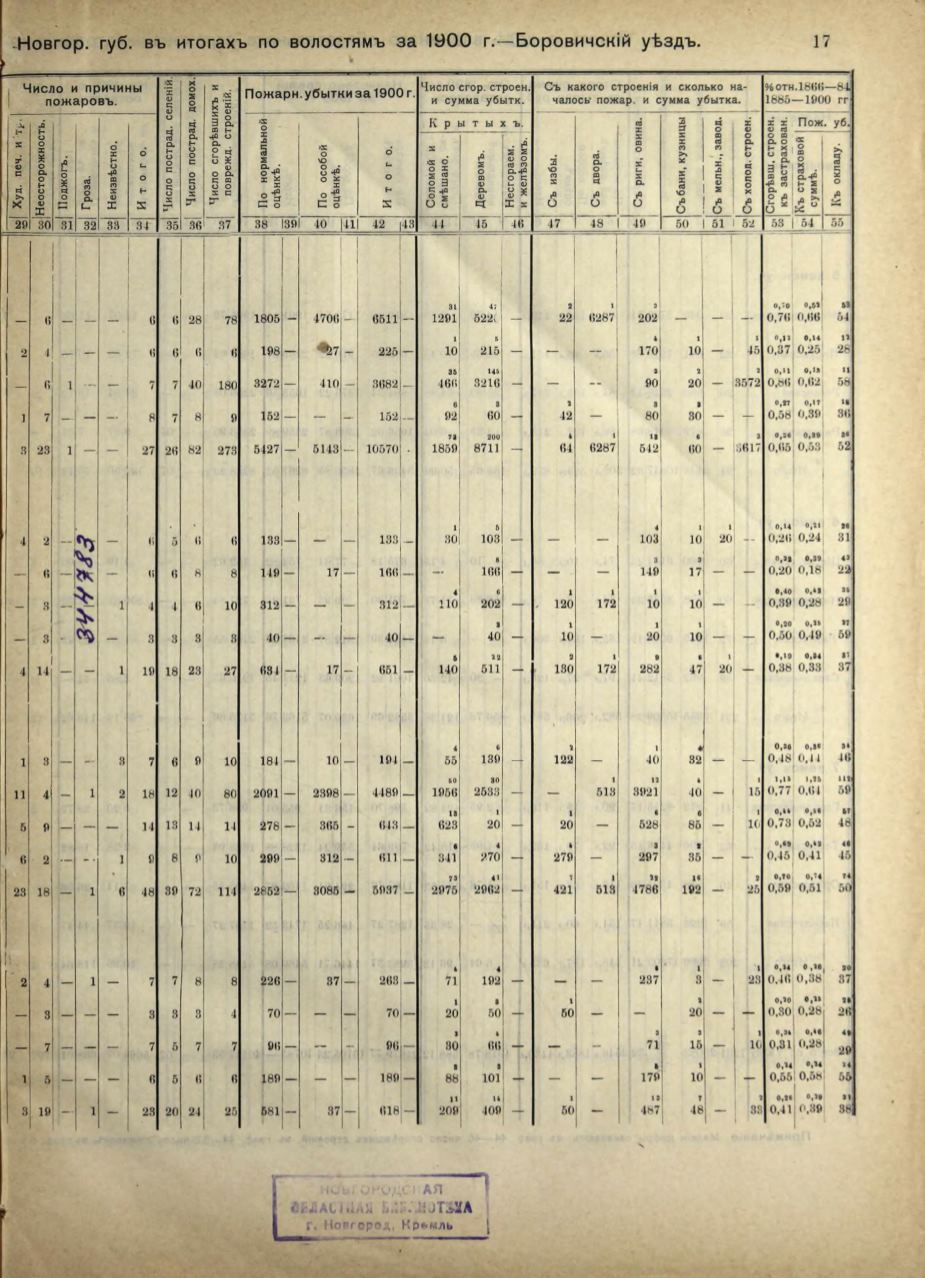 Новгор. губ. въ итогахъ по волостямъ за 1900 г.—Боровичскій уѣздъ. 17
Число и причины пожаровъ. Число пострад. селеній. Число пострад. домох. Число сгорѣвшихъ и поврежд. строеній. Пожарн. убытки за 1900 г. Число сгор. строен. и сумма убытк. Съ какого строенія и сколько началось пожар. и сумма убытка. % отн. 1866—84 1885—1900 гг
Худ. печ. и тр. Неосторожность. Поджогъ. Гроза. Неизвѣстно. Итого. По нормальной оцѣнкѣ. По особой оцѣнкѣ. Итого. Крытыхъ. Соломой и смѣшано. Деревомъ. Несгораем. и желѣзомъ. Съ избы. Съ двора. Съ риги, овина. Съ бани, кузницы Съ мельн., завод. Съ холод. строен. Сгорѣвш. строен. къ застрахован. Пож. уб. Къ страховой суммѣ. Къ окладу.
29 30 31 32 33 34 35 36 37 38 39 40 41 42 43 44 45 46 47 48 49 50 51 52 53 54 55
31 2 1 3
— 6 — — — 6 6 28 78 1805 — 4706 — 6511 — 1291 22 6287 202 — — — 0,76 0,66 54
1 5 4 1 1
2 4 — — — 6 6 6 6 198 — 27 — 225 — 10 215 — — — 170 10 — 45 0,37 0,25 28
35 145 3 2 2
— 6 1 — — 7 7 40 180 3272 — 410 — 3682 — 466 3216 — — — 90 20 — 3572 0,86 0,62 58
6 3 2 3 3
1 7 — — — 8 7 8 9 152 — — — 152 — 92 60 — 42 — 80 30 — — 0,58 0,39 36
73 200 4 1 12 6 3
3 23 1 — — 27 26 82 273 5427 — 5143 — 10570 1859 8711 — 64 6287 542 60 — 3617 0,65 0,53 52
1 5 4 1 1
4 2 — — 6 5 6 6 133 — — — 133 — 30 103 — — — 103 10 20 — 0,26 0,24 31
8 3 3
— 6 — — 6 6 8 8 149 — 17 — 166 — — 166 — — — 149 17 — — 0,20 0,18 22
4 6 1 1 1 1
— 3 — 1 4 4 6 10 312 — — — 312 — 110 202 — 120 172 10 10 — — 0,39 0,28 29
3 1 1 1
— 3 — 3 3 3 3 40 — — — 40 — — 40 — 10 — 20 10 — — 0,50 0,49 59
344783
5 22 2 1 9 6 1
4 14 — — 1 19 18 23 27 634 — 17 — 651 — 140 511 — 130 172 282 47 20 — 0,38 0,33 37
4 6 2 1 4
1 3 — — 3 7 6 9 10 184 — 10 — 194 — 55 139 — 122 — 40 32 — — 0,48 0,44 46
50 30 1 12 4 1
11 4 — 1 2 18 12 40 80 2091 — 2398 — 4489 — 1956 2533 — — 513 3921 40 — 15 0,77 0,64 59
13 1 1 6 6 1
5 9 — — — 14 13 14 14 278 — 365 — 643 — 623 20 — 20 — 528 85 — 10 0,73 0,52 48
6 4 4 3 2
6 2 — — 1 9 8 9 10 299 — 312 — 611 — 341 270 — 279 — 297 35 — — 0,45 0,41 45
73 41 7 1 22 16 2
23 18 — 1 6 48 39 72 114 2852 — 3085 — 5937 — 2975 2962 — 421 513 4786 192 — 25 0,59 0,51 50
4 4 1 1
2 4 — 1 — 7 7 8 8 226 — 37 — 263 — 71 192 — — — 237 3 — 23 0,46 0,38 37
1 3 1 2
— 3 — — — 3 3 3 4 70 — — — 70 — 20 50 — 50 — — 20 — — 0,30 0,28 26
3 4 3 3 1
— 7 — — — 7 5 7 7 96 — — — 96 — 30 66 — — — 71 15 — 10 0,31 0,28 29
1
1 5 — — — 6 5 6 6 189 — — — 189 — 88 101 — — — 179 10 — — 0,55 0,58 55
11 14 1 13 7 2
3 19 — 1 — 23 20 24 25 581 — 37 — 618 — 209 409 — 50 — 487 48 — 33 0,41 0,39 38
НОВГОРОДСКАЯ
ОБЛАСТНАЯ БИБЛИОТЕКА
г. Новгород, Кремль